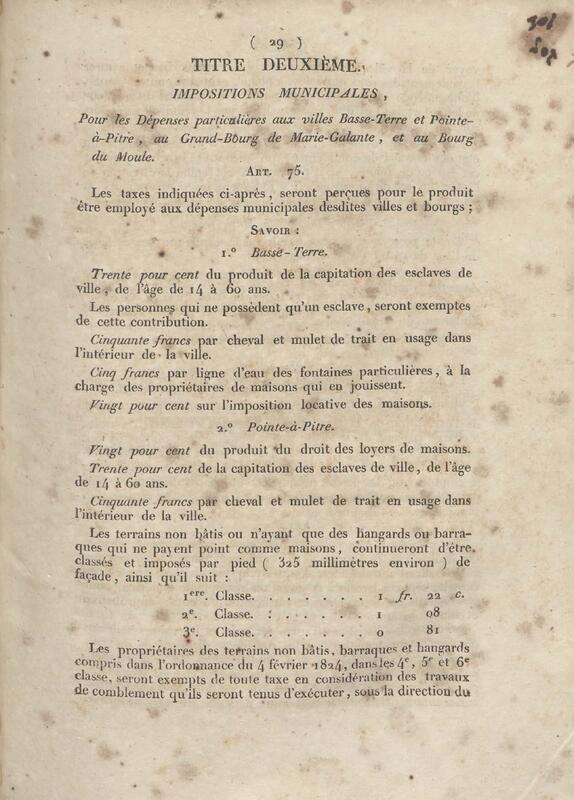 ( 29 )
TITRE DEUXIÈME.
IMPOSITIONS MUNICIPALES ,
Pour les Dépenses particulières aux villes Basse-Terre et Pointe-
à-Pitre , au Grand-Bourg de Marie-Galante , et au Bourg
du Moule.
ART. 75.
Les taxes indiquées ci-après, seront perçues pour le produit
être employé aux dépenses municipales desdites villes et bourgs ;
SAVOIR :
1.º Basse-Terre.
Trente pour cent du produit de la capitation des esclaves de
ville , de l'âge de 14 à 60 ans.
Les personnes qui ne possèdent qu'un esclave, seront exemptes
de cette contribution.
Cinquante francs par cheval et mulet de trait en usage dans
l'intérieur de la ville.
Cinq francs par ligne d'eau des fontaines particulières, à la
charge des propriétaires de maisons qui en jouissent.
Vingt pour cent sur l'imposition locative des maisons.
2.º Pointe-à-Pitre.
Vingt pour cent du produit du droit des loyers de maisons.
Trente pour cent de la capitation des esclaves de ville, de l'âge
de 14 à 60 ans.
Cinquante francs par cheval et mulet de trait en usage dans
l'intérieur de la ville.
Les terrains non bâtis ou n'ayant que des hangards ou barra-
ques qui ne payent point comme maisons, continueront d'être
classés et imposés par pied ( 325 millimètres environ ) de
façade, ainsi qu'il suit :
1ere. Classe. . . . . . . 1 fr. 22 c.
2e. Classe. . . . . . . 1 08
3e. Classe. . . . . . . 0 81
Les propriétaires des terrains non bâtis, barraques et hangards
compris dans l'ordonnance du 4 février 1824, dans les 4e, 5e et 6e
classe, seront exempts de toute taxe en considération des travaux
de comblement qu'ils seront tenus d'exécuter, sous la direction du